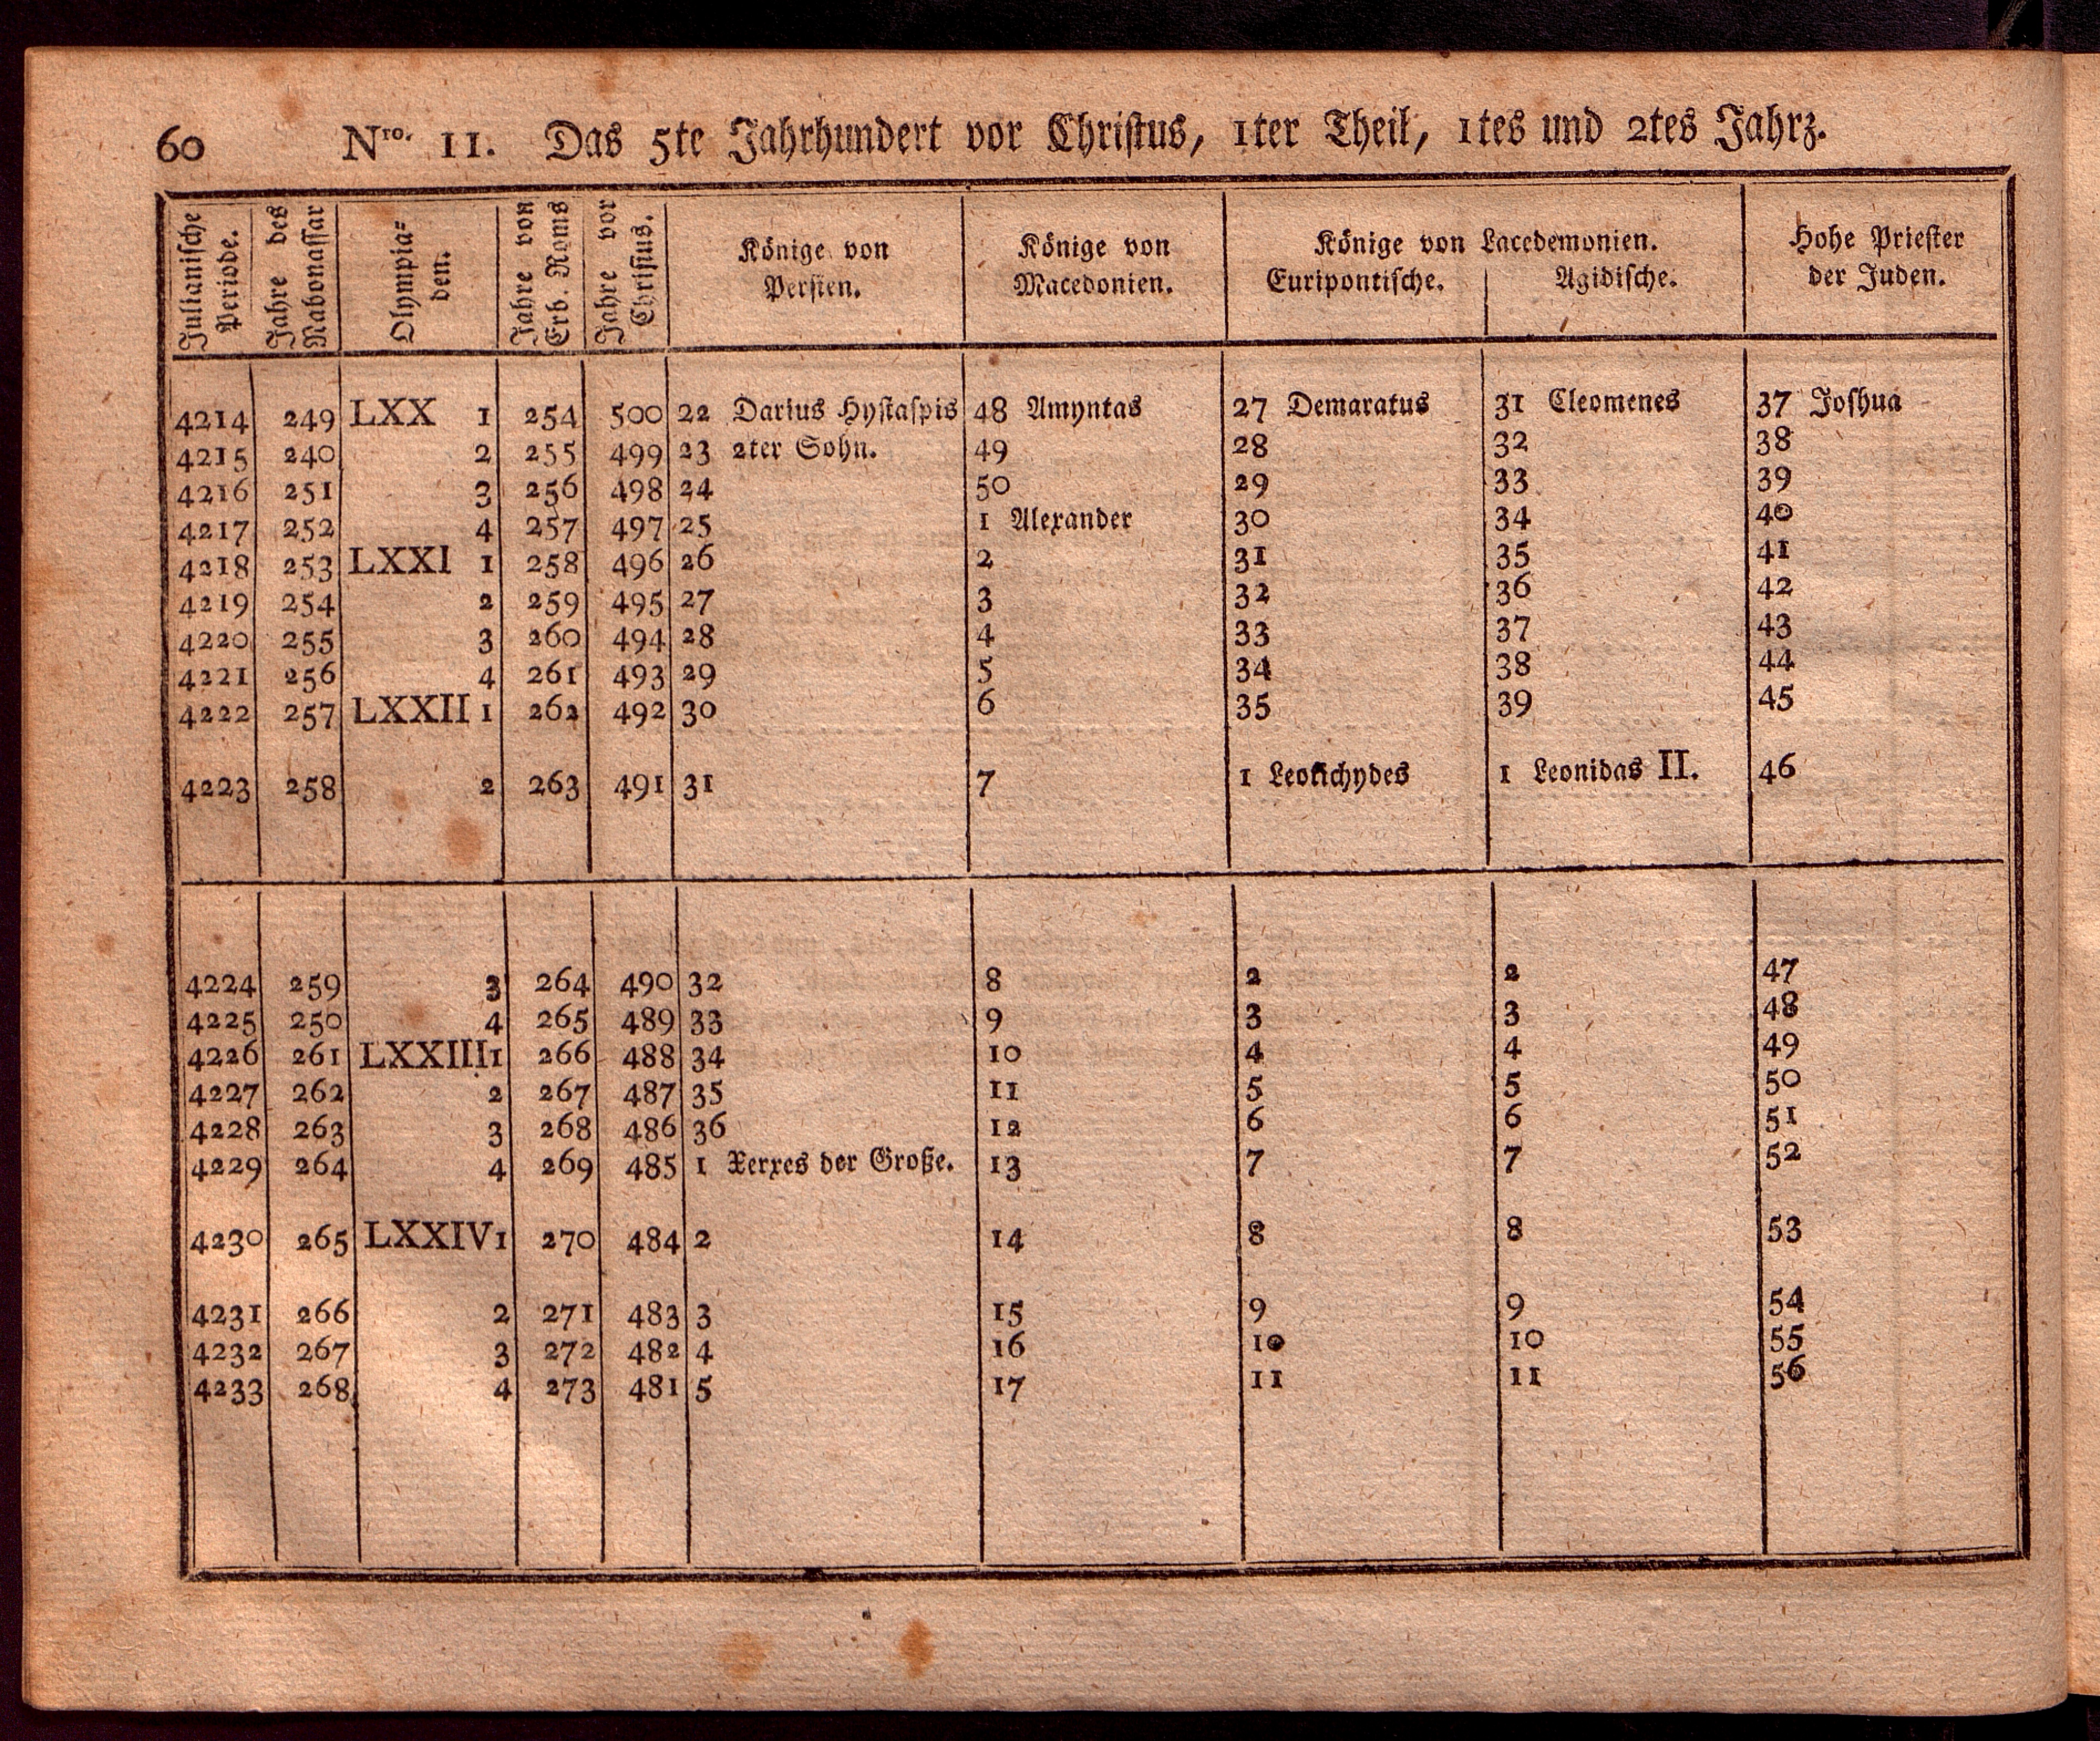 60 Nro. 11. Das 5te Jahrhundert vor Christus, 1ter Theil, 1tes und 2tes Jahrz.
Julianische Periode.
Jahre des Nabonassar
Olympia=
den.
Jahre von Erb. Roms
Jahre vor Christus.
Könige von
Persien.
Könige von
Macedonien.
Könige von Lacedemonien.
Euripontische. Agidische.
Hohe Priester
der Juden.
4214 249 LXX 1 254 500 22 Darius Hystaspis 48 Amyntas 27 Demaratus 31 Cleomenes 37 Joshua
4215 240 2 255 499 23 2ter Sohn. 49 28 32 38
4216 251 3 256 498 24 50 29 33 39
4217 252 4 257 497 25 1 Alexander 30 34 40
4218 253 LXXI 1 258 496 26 2 31 35 41
4219 254 2 259 495 27 3 32 36 42
4220 255 3 260 494 28 4 33 37 43
4221 256 4 261 493 29 5 34 38 44
4222 257 LXXII 1 262 492 30 6 35 39 45
4223 258 2 263 491 31 7 1 Leotichydes 1 Leonidas II. 46
4224 259 3 264 490 32 8 2 2 47
4225 250 4 265 489 33 9 3 3 48
4226 261 LXXIII 1 266 488 34 10 4 4 49
4227 262 2 267 487 35 11 5 5 50
4228 263 3 268 486 36 12 6 6 51
4229 264 4 269 485 1 Xerxes der Große. 13 7 7 52
4230 265 LXXIV 1 270 484 2 14 8 8 53
4231 266 2 271 483 3 15 9 9 54
4232 267 3 272 482 4 16 10 10 55
4233 268 4 273 481 5 17 11 11 56